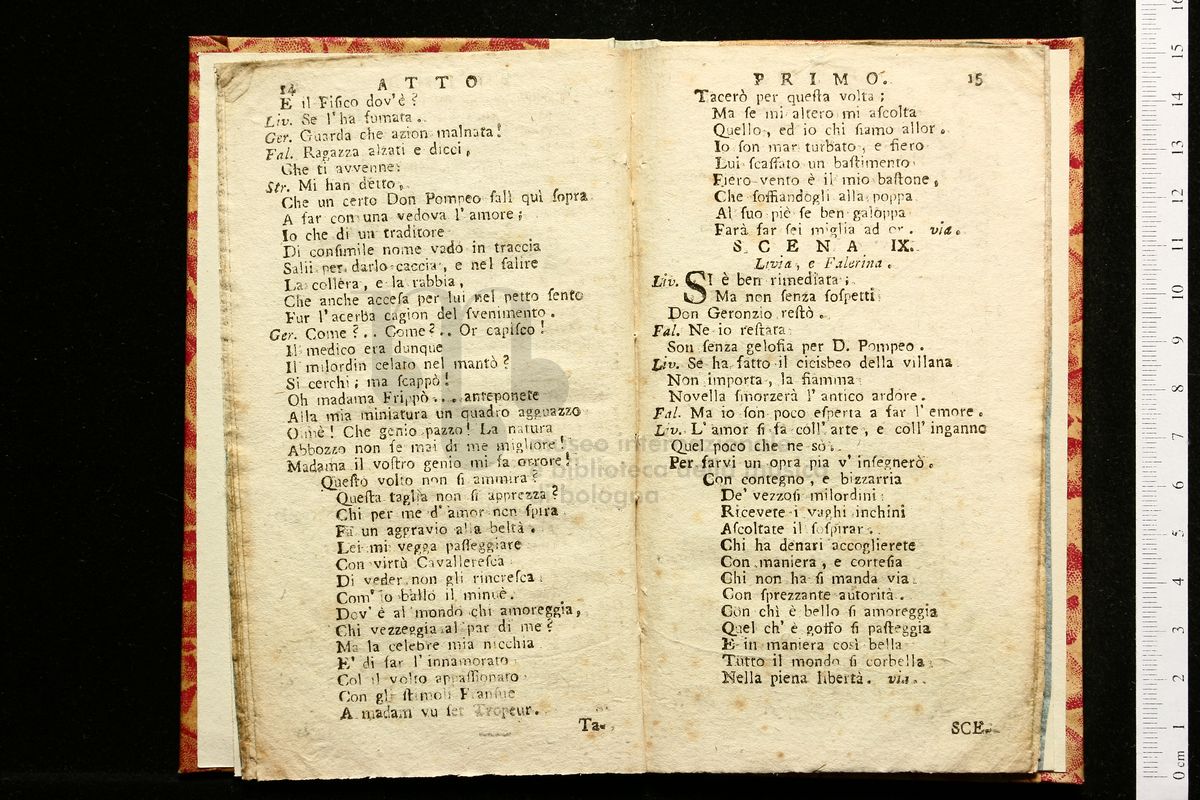 14 ATTO
E il Fisico dov'è?
Liv. Se l'ha fumata.
Ger. Guarda che azion malnata!
Fal. Ragazza alzati e dicci,
Che ti avvenne:
Str. Mi han detto,
Che un certo Don Pompeo salì quì sopra
A far con una vedova l'amore;
Io che di un traditore
Di consimile nome vado in traccia
Salii per darlo caccia, e nel salire
La collera, e la rabbia,
Che anche accesa per lui nel petto sento
Fur l'acerba cagion del svenimento.
Ger. Come?.. Come?.. Or capisco!
Il medico era dunque
Il milordin celato nel mantò?
Si cerchi; ma scappò!
Oh madama Frippò... anteponete
Alla mia miniatura un quadro agguazzo
Omè! Che genio pazzo! La natura
Abbozzo non fe mai di me migliore!
Madama il vostro genio mi fa orrore!
Questo volto non si ammira?
Questa taglia non si apprezza?
Chi per me d'amor non spira
Fa un aggravio alla beltà.
Lei mi vegga passeggiare
Con virtù Cavalleresca
Di veder non gli rincresca
Com' io ballo il minuè.
Dov' è al mondo chi amoreggia,
Chi vezzeggia al par di me?
Ma la celebre mia nicchia
E' di far l'innamorato
Col il volto appassionato
Con gli stimoli Fransue
A madam vu set Tropeur.
Ta-
PRIMO. 15
Tacerò per questa volta;
Ma se mi altero mi ascolta
Quello, ed io chi siamo allor.
Io son mar turbato, e fiero
Lui scassato un bastimento
Fiero vento è il mio bastone,
Che soffiandogli alla poppa
Al suo piè se ben galoppa
Farà far sei miglia ad or. via.
SCENA IX.
Livia, e Falerina.
Liv. SI è ben rimediata;
Ma non senza sospetti
Don Geronzio restò.
Fal. Ne io restata
Son senza gelosia per D. Pompeo.
Liv. Se ha fatto il cicisbeo della villana
Non importa, la fiamma
Novella smorzerà l'antico ardore.
Fal. Ma io son poco esperta a far l'emore.
Liv. L'amor si fa coll'arte, e coll'inganno
Quel poco che ne sò
Per farvi un opra pia v' insegnerò.
Con contegno, e bizzarria
De' vezzosi milordini
Ricevete i vaghi inchini
Ascoltate il sospirar.
Chi ha denari accoglierete
Con maniera, e cortesia
Chi non ha si manda via
Con sprezzante autorità.
Con chì è bello si amoreggia
Quel ch' è goffo si pasteggia
E in maniera così bella
Tutto il mondo si corbella
Nella piena libertà. via.
SCE-